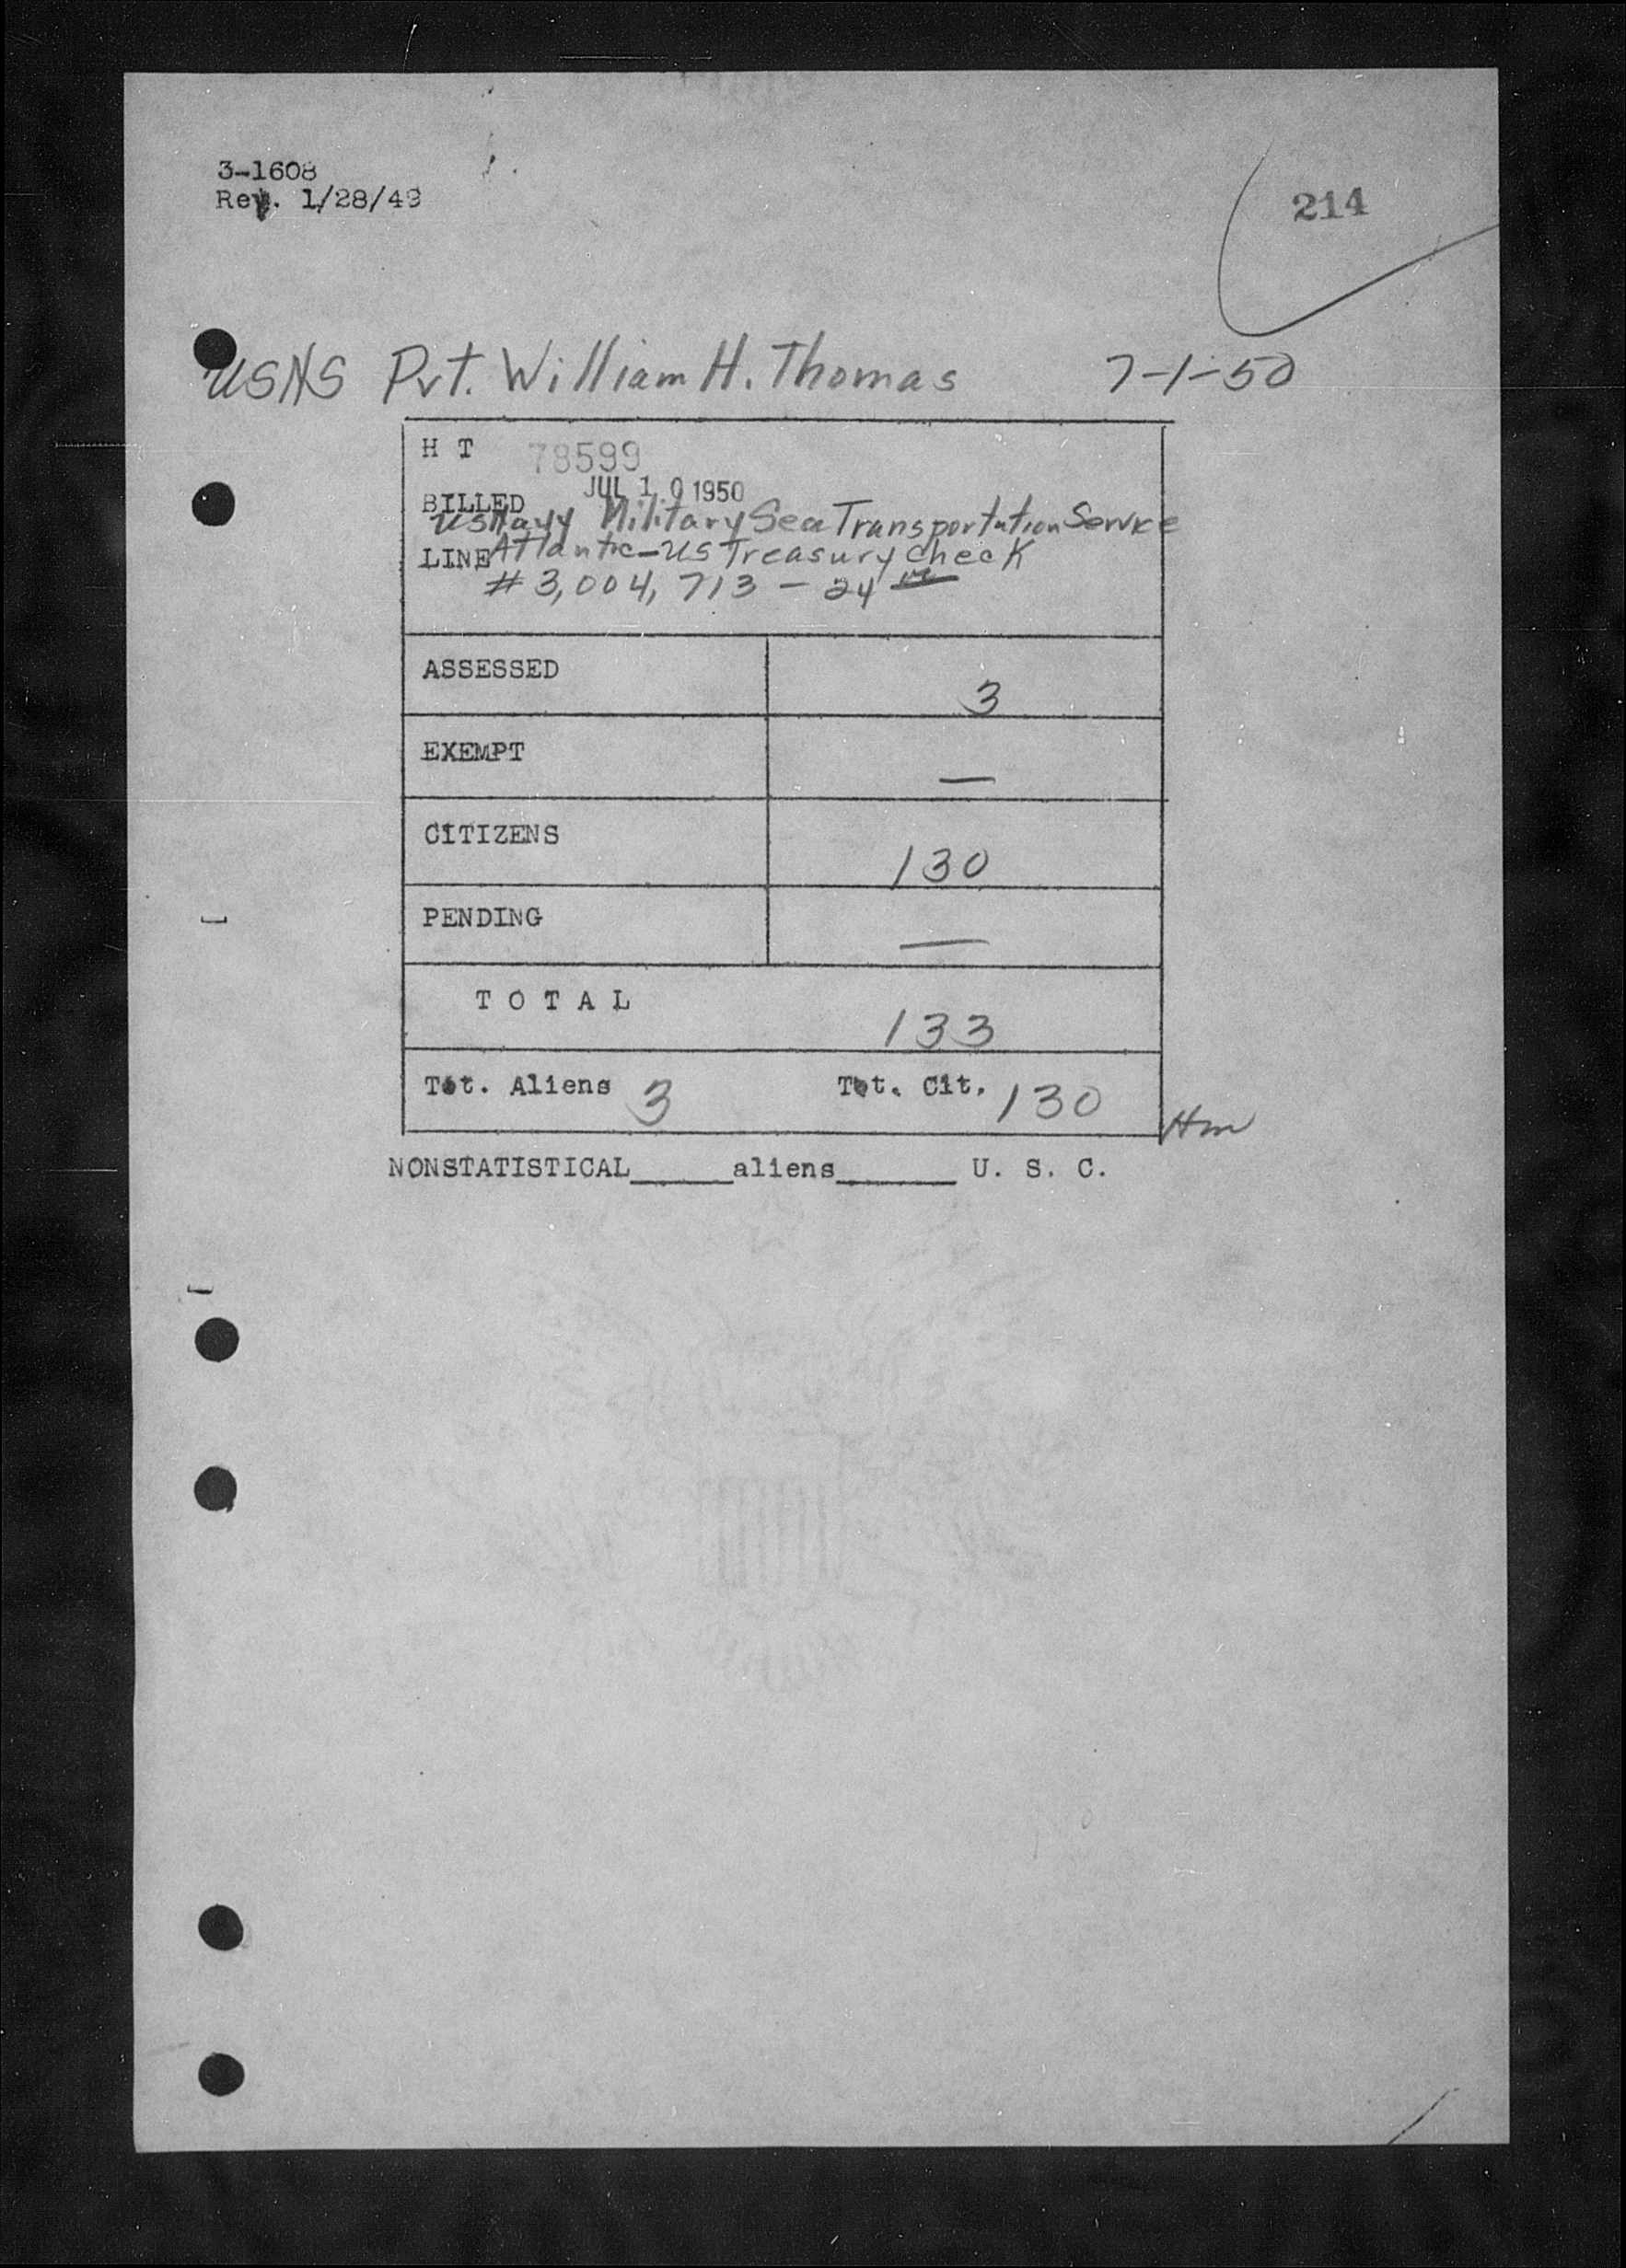 3-1608
Rev. 1/28/49
214
USNS Pvt. William H. Thomas 7-1-50
H T 78599
JUL 10 1950
BILLED
US Navy Military Sea Transportation Service
LINE Atlantic - US Treasury Check
# 3,004,713 - 24
ASSESSED 3
EXEMPT —
CITIZENS 130
PENDING —
T O T A L 133
Tot. Aliens 3 Tot. Cit. 130
Hm
NONSTATISTICAL_____aliens______ U. S. C.